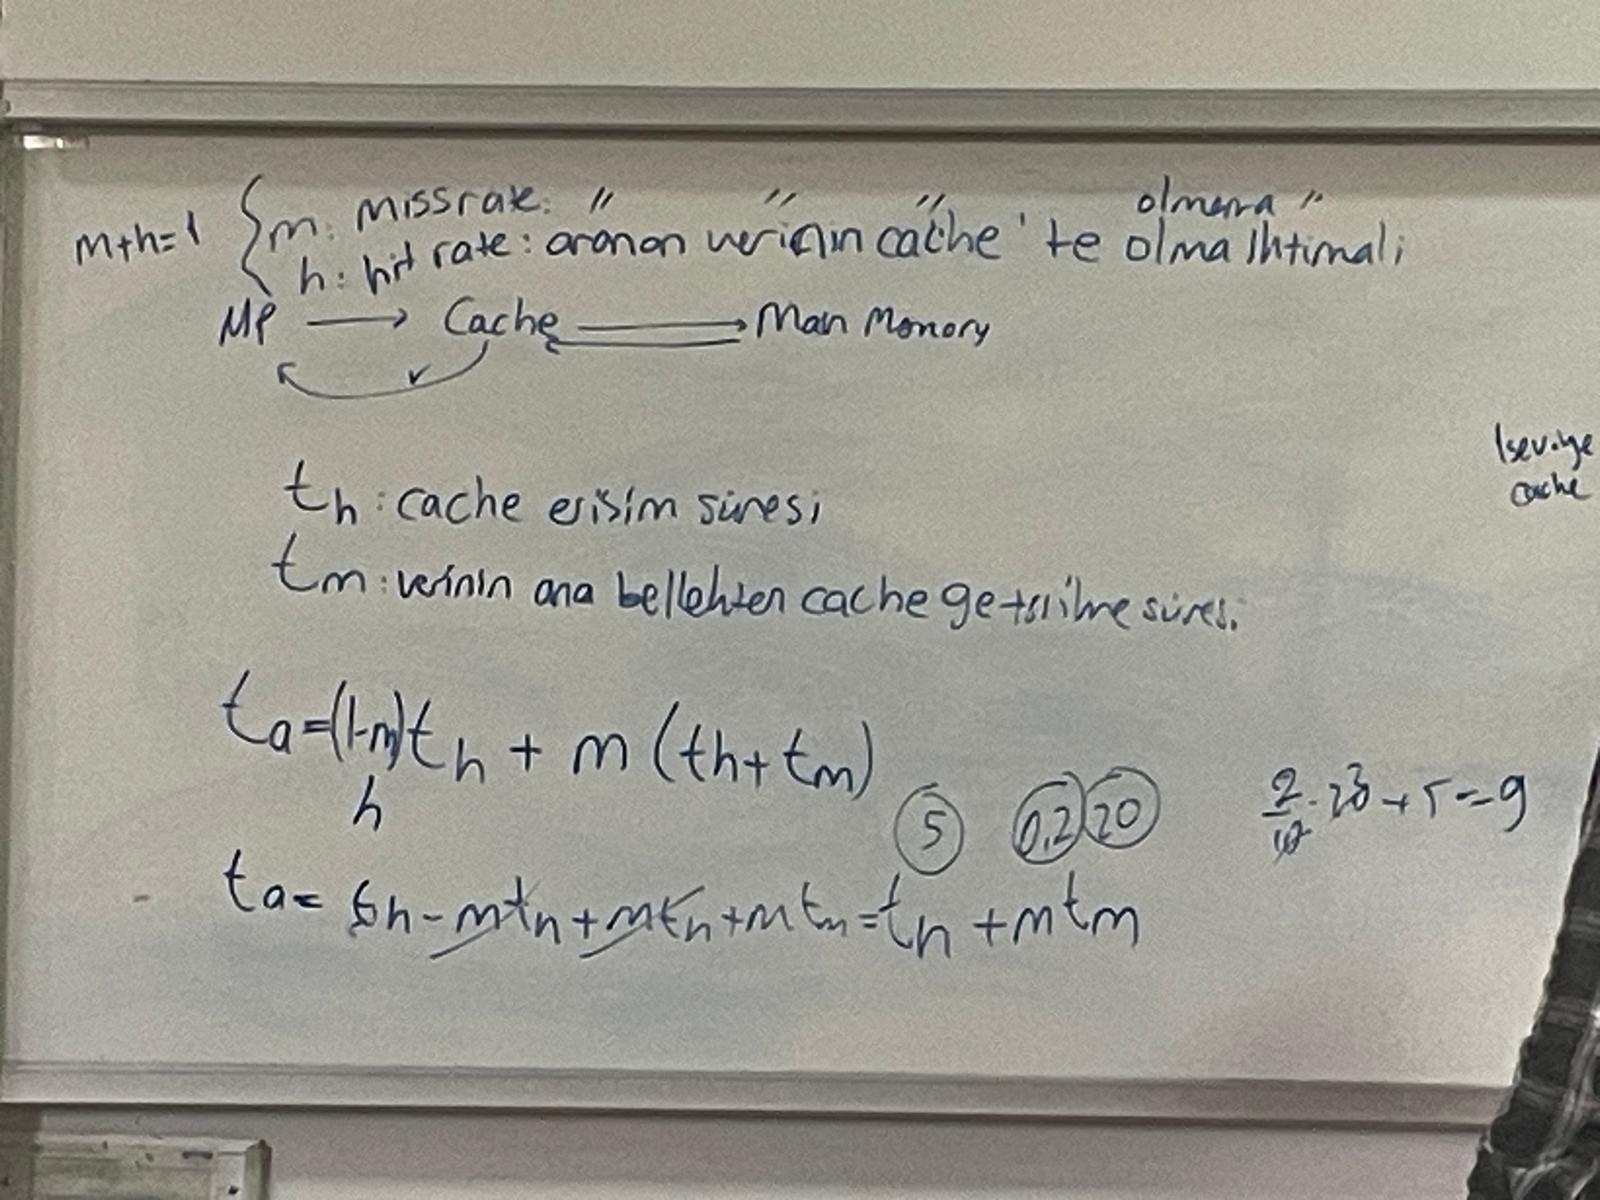 m+h=1 { m: missrate: " " " olmama "
h: hit rate: aranan verinin cache'te olma ihtimali
MP → Cache → Main Memory
1 seviye
cache
th: cache erişim süresi
tm: verinin ana bellekten cache getirilme süresi
ta=(1-m)th + m (th+tm)
h
5 0,2 20
2/10 . 20 + 5 = 9
ta= th - mth + mth + mtm = th + mtm